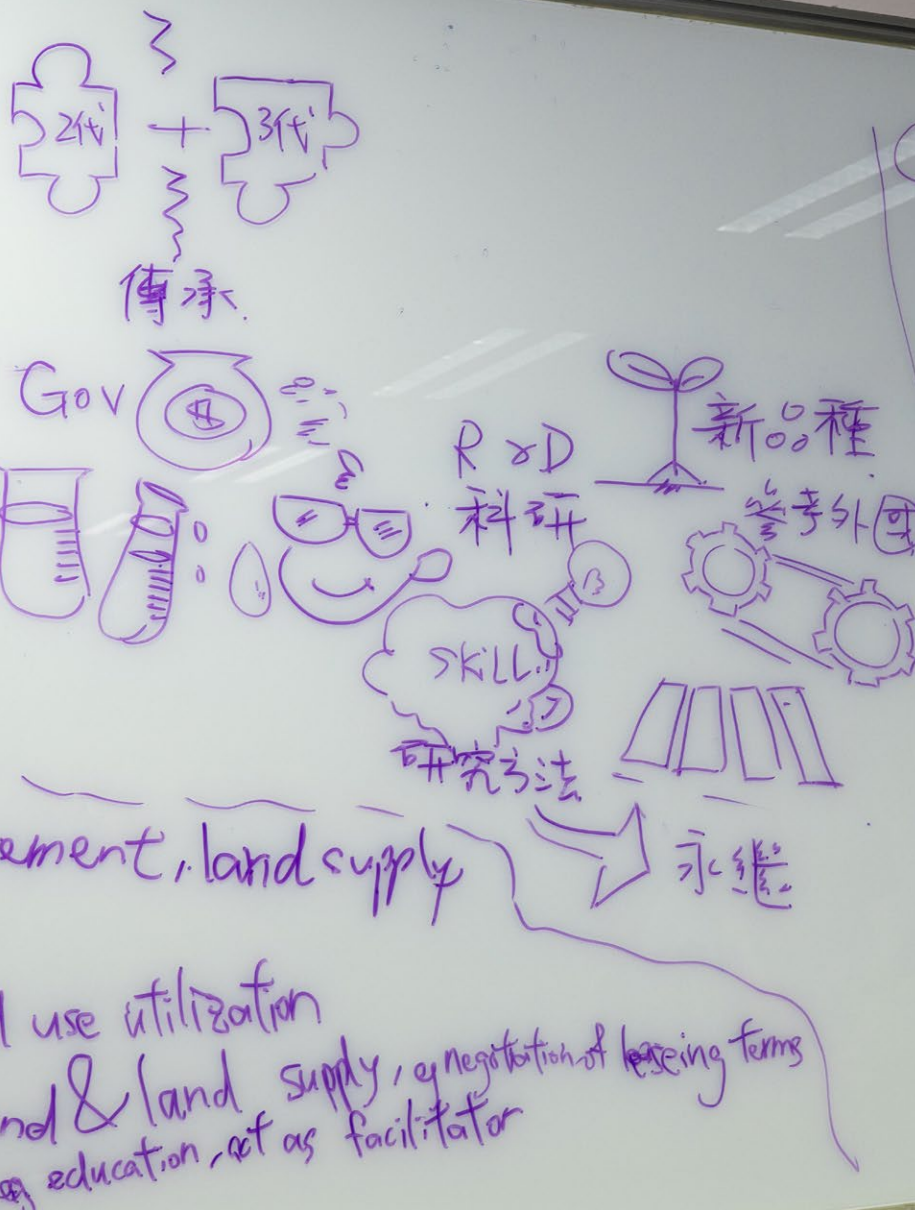 2代 + 3代
傳承
Gov
R & D
科研
新品種
參考外国
SKILL
研究方法
永繼
ement, land supply
l use utilization
nd & land supply, eg negotiation of leaseing terms
education, act as facilitator